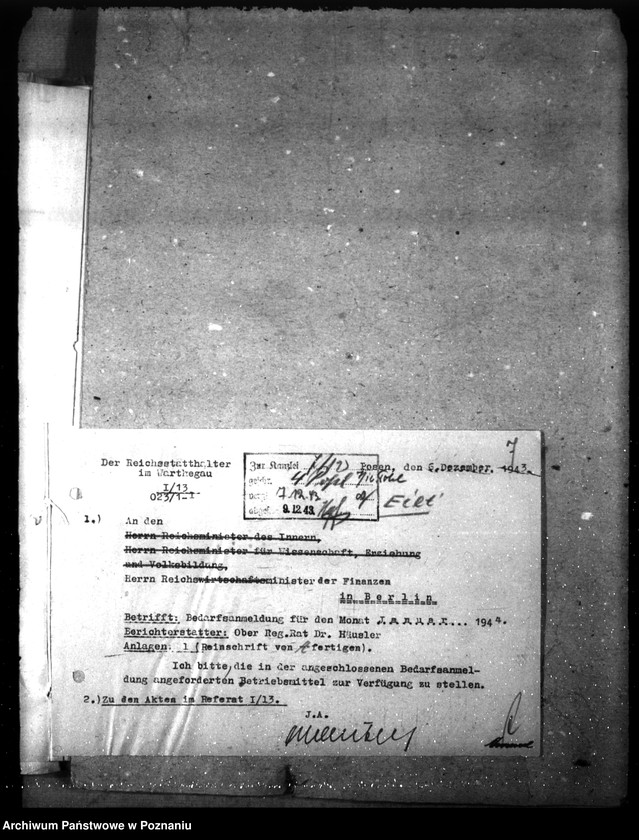 7
Der Reichsstatthalter
im Warthegau
I/13
023/1-1
Zur Kanzlei
7.12.43
9.12.43
Eilt
Posen, den 6. Dezember. 1943.
1.) An den
Herrn Reichsminister des Innern,
Herrn Reichsminister für Wissenschaft, Erziehung
und Volksbildung,
Herrn Reichswirtschaftsminister der Finanzen
in Berlin
Betrifft: Bedarfsanmeldung für den Monat Januar... 1944.
Berichterstatter: Ober Reg.Rat Dr. Häusler
Anlagen: 1 (Reinschrift von fertigen).
Ich bitte, die in der angeschlossenen Bedarfsanmel-
dung angeforderten Betriebsmittel zur Verfügung zu stellen.
2.) Zu den Akten im Referat I/13.
J.A.
Archiwum Państwowe w Poznaniu